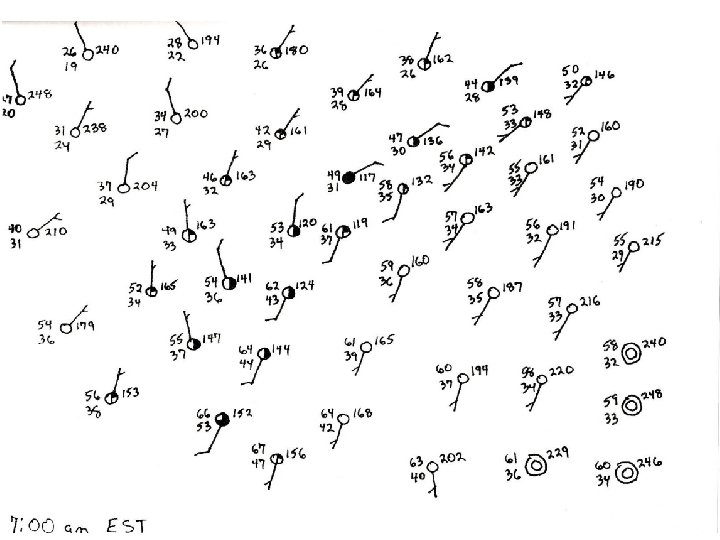 26 240
19
28 194
22
36 180
26
38 162
26
248
20
39 164
28
44 139
28
50 146
32
31 238
24
34 200
27
42 161
29
47 136
30
53 148
33
52 160
31
37 204
29
46 163
32
49 117
31
58 132
35
56 142
34
55 161
33
54 190
30
40 210
31
49 163
33
53 120
34
61 119
37
57 163
34
56 191
32
55 215
29
52 165
34
54 141
36
62 124
43
59 160
36
58 187
35
57 216
33
54 179
36
55 147
37
64 144
44
61 165
39
60 194
37
58 220
34
58 240
32
56 153
38
66 152
53
64 168
42
59 248
33
67 156
47
63 202
40
61 229
36
60 246
34
7:00 am EST